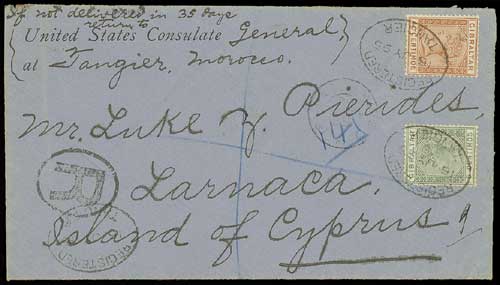 If not delivered in 35 days
return to
United States Consulate General
at Tangier, Morocco.
Mr. Luke Z. Pierides,
Larnaca,
Island of Cyprus
R
REGISTERED
GIBRALTAR
REGISTERED
TANGIER
GIBRALTAR
REGISTERED